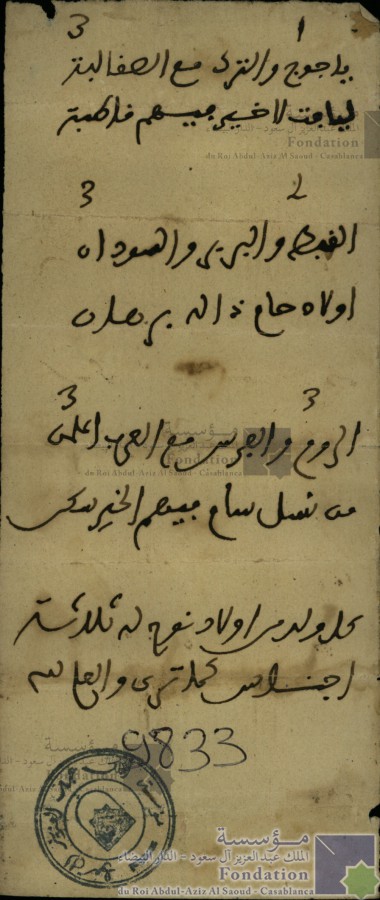 1 3
ياجوج والترك مع الصقالبة
ليافت لا خير فيهم قاطبة
2 3
القبط والبربر والسودان
اولاد حام ذا له برهان
3 3
الروم والفرس مع العرب اعلمن
من نسل سام فيهم الخير سكن
كل ولد من اولاد نوح له ثلاثة
اجناس كما ترى والعلم لله
9833
مؤسسة
الملك عبد العزيز آل سعود - الدار البيضاء
Fondation
du Roi Abdul-Aziz Al Saoud - Casablanca